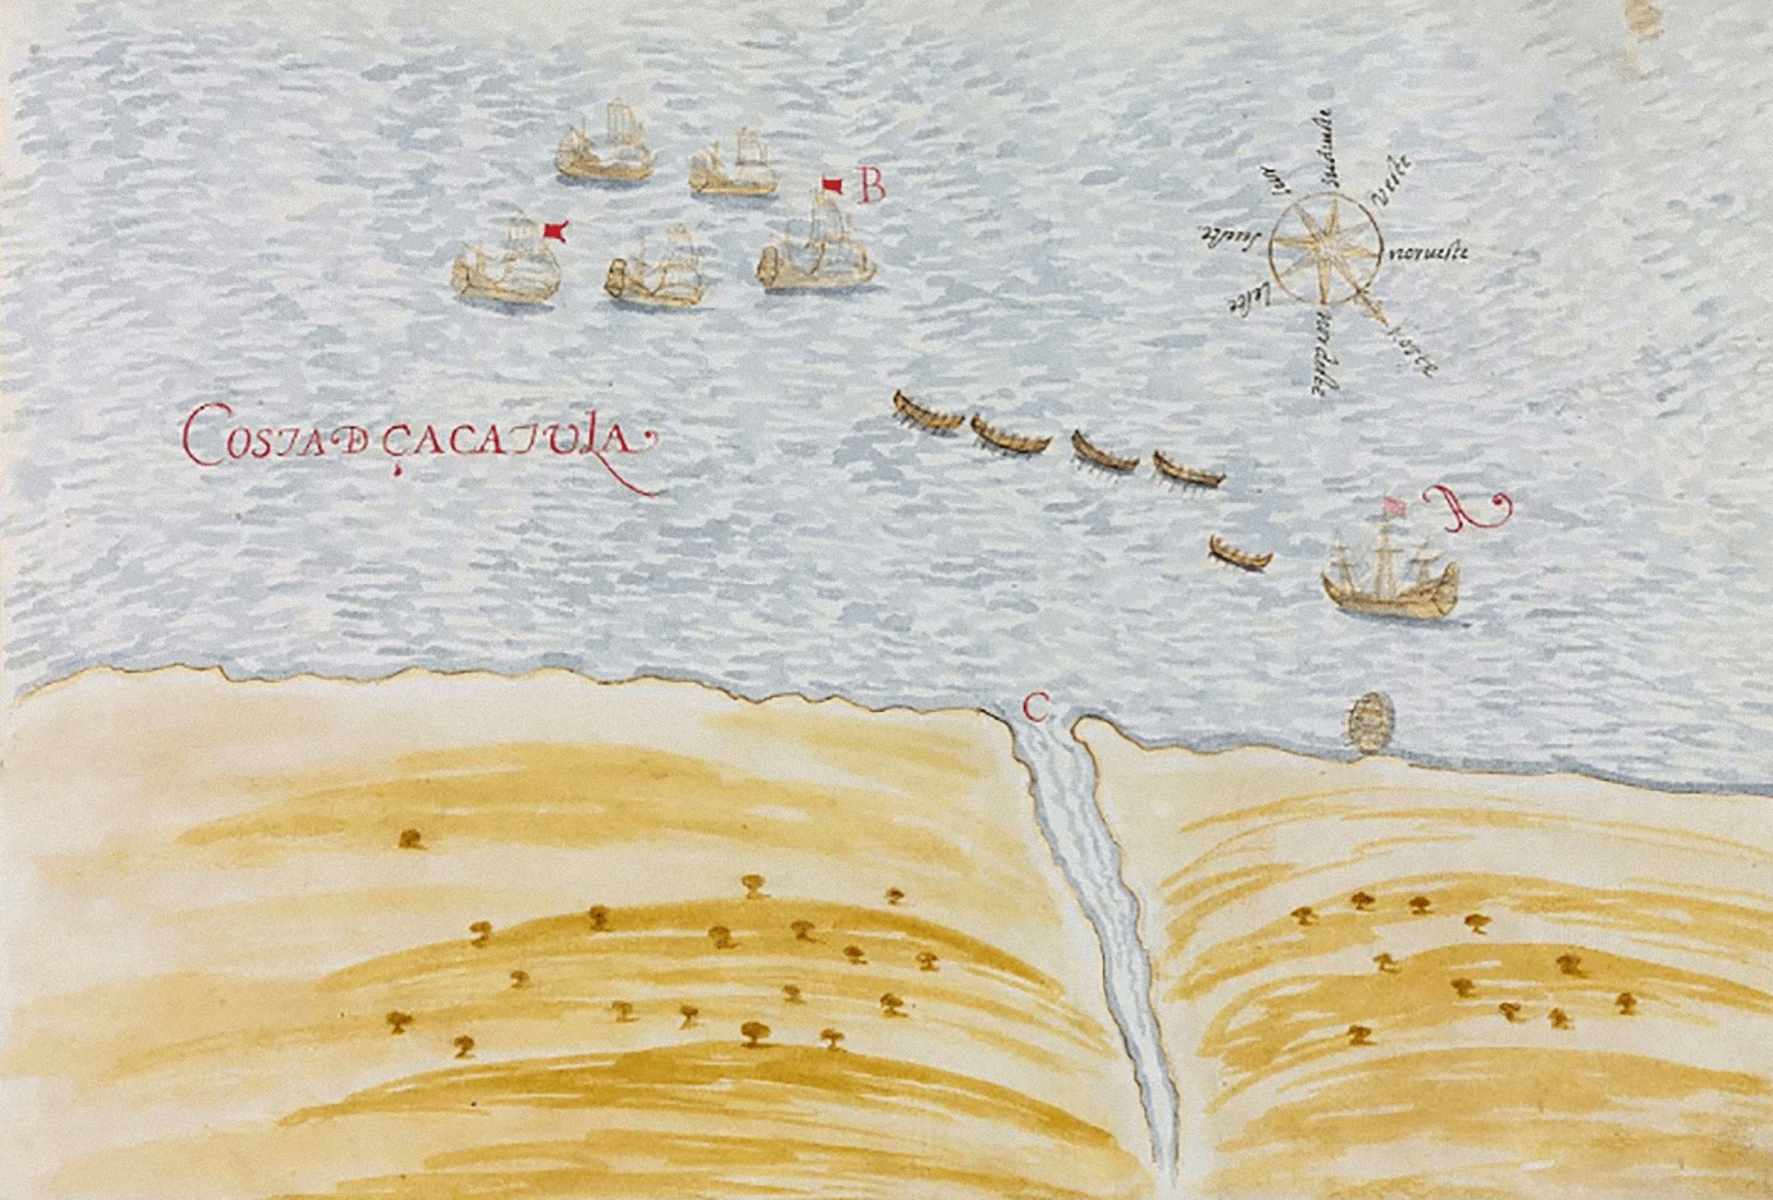 B
sudueste
sul
veste
sueste
norueste
Leste
nordeste
COSTA Đ ÇACATULA
A
C